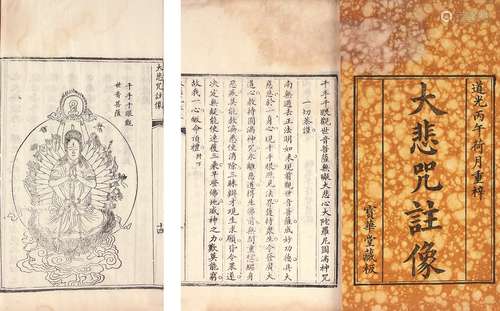 道光丙午荷月重梓
大悲咒註像
寶華堂藏板
千手千眼觀世音菩薩無礙大悲心大陀羅尼圓滿神咒
一切恭謹
南無過去正法明如來現前觀世音菩薩成妙功德具大
慈悲於一身心現千手千眼照見法界護持眾生令發廣大
道心教持圓滿神咒永離惡道得生佛前無間重愆纏身
惡疾莫能救濟悉使消除三昧辯才現生求願皆令果遂
決定無疑能使速獲三乘早登佛地威神之力歎莫能窮
故我一心歸命頂禮
大悲咒註像
十四
千手千眼觀
世音菩薩